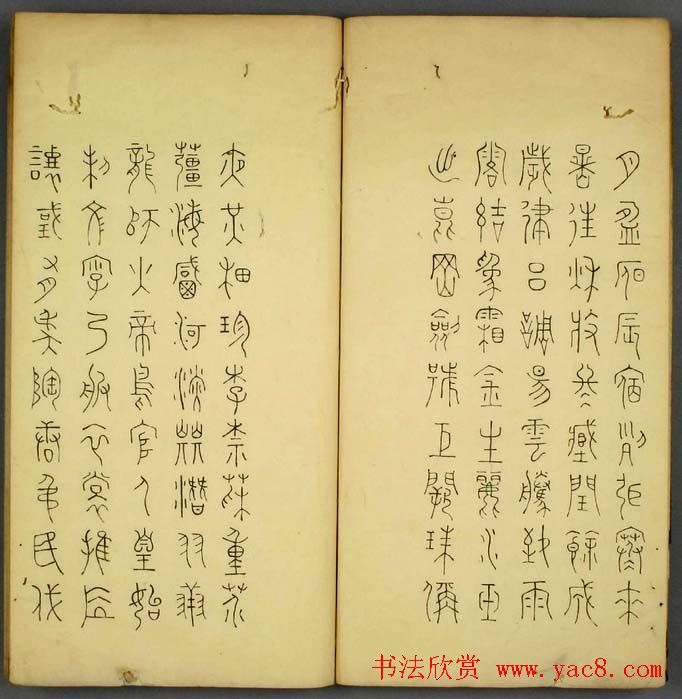 月盈昃辰宿列張寒來
暑往秋收冬藏閏餘成
歲律呂調陽雲騰致雨
露結爲霜金生麗水玉
出崑岡劍號巨闕珠稱
夜光果珍李柰菜重芥
薑海鹹河淡鱗潛羽翔
龍師火帝鳥官人皇始
制文字乃服衣裳推位
讓國有虞陶唐弔民伐
书法欣赏 www.yac8.com